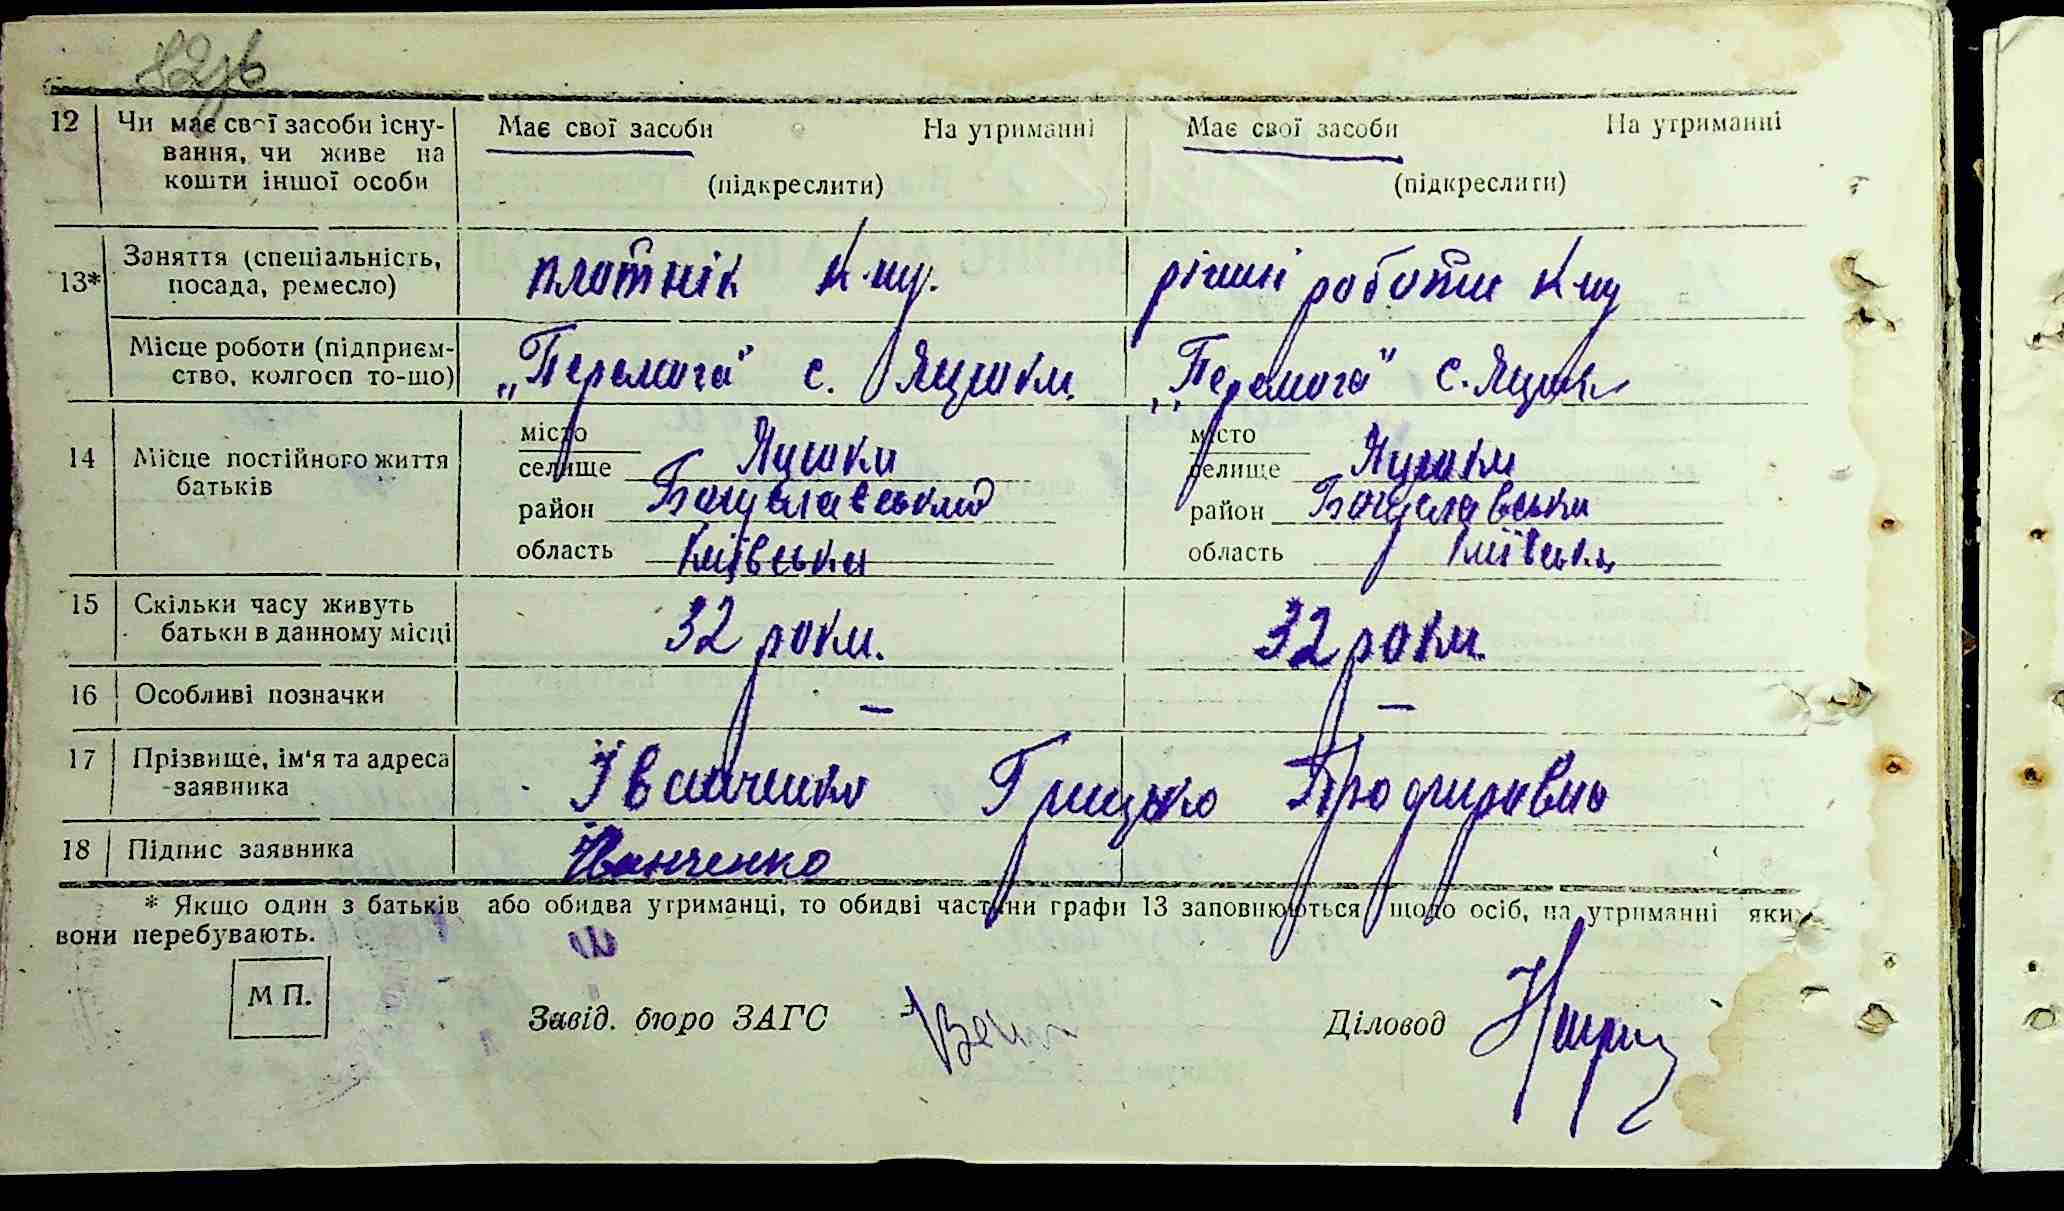 12 Чи має свої засоби існу- Має свої засоби На утриманні Має свої засоби На утриманні
вання, чи живе на
кошти іншої особи (підкреслити) (підкреслити)
13* Заняття (спеціальність, плотнік к-пу. різні роботи к-пу
посада, ремесло)
Місце роботи (підприєм- „Перемога" с. Яцюки „Перемога" с. Яцюки
ство, колгосп то-що)
14 Місце постійного життя місто місто
батьків селище Яцюки селище Яцюки
район Богуславський район Богуславськи
область Київська область Київська
15 Скільки часу живуть 32 роки. 32 роки.
батьки в данному місці
16 Особливі позначки — —
17 Прізвище, ім'я та адреса Іванченко Грицько Профировив
заявника
18 Підпис заявника Іванченко
* Якщо один з батьків або обидва утриманці, то обидві частини графи 13 заповнюються щодо осіб, на утриманні яких
вони перебувають.
М П. Завід. бюро ЗАГС Діловод